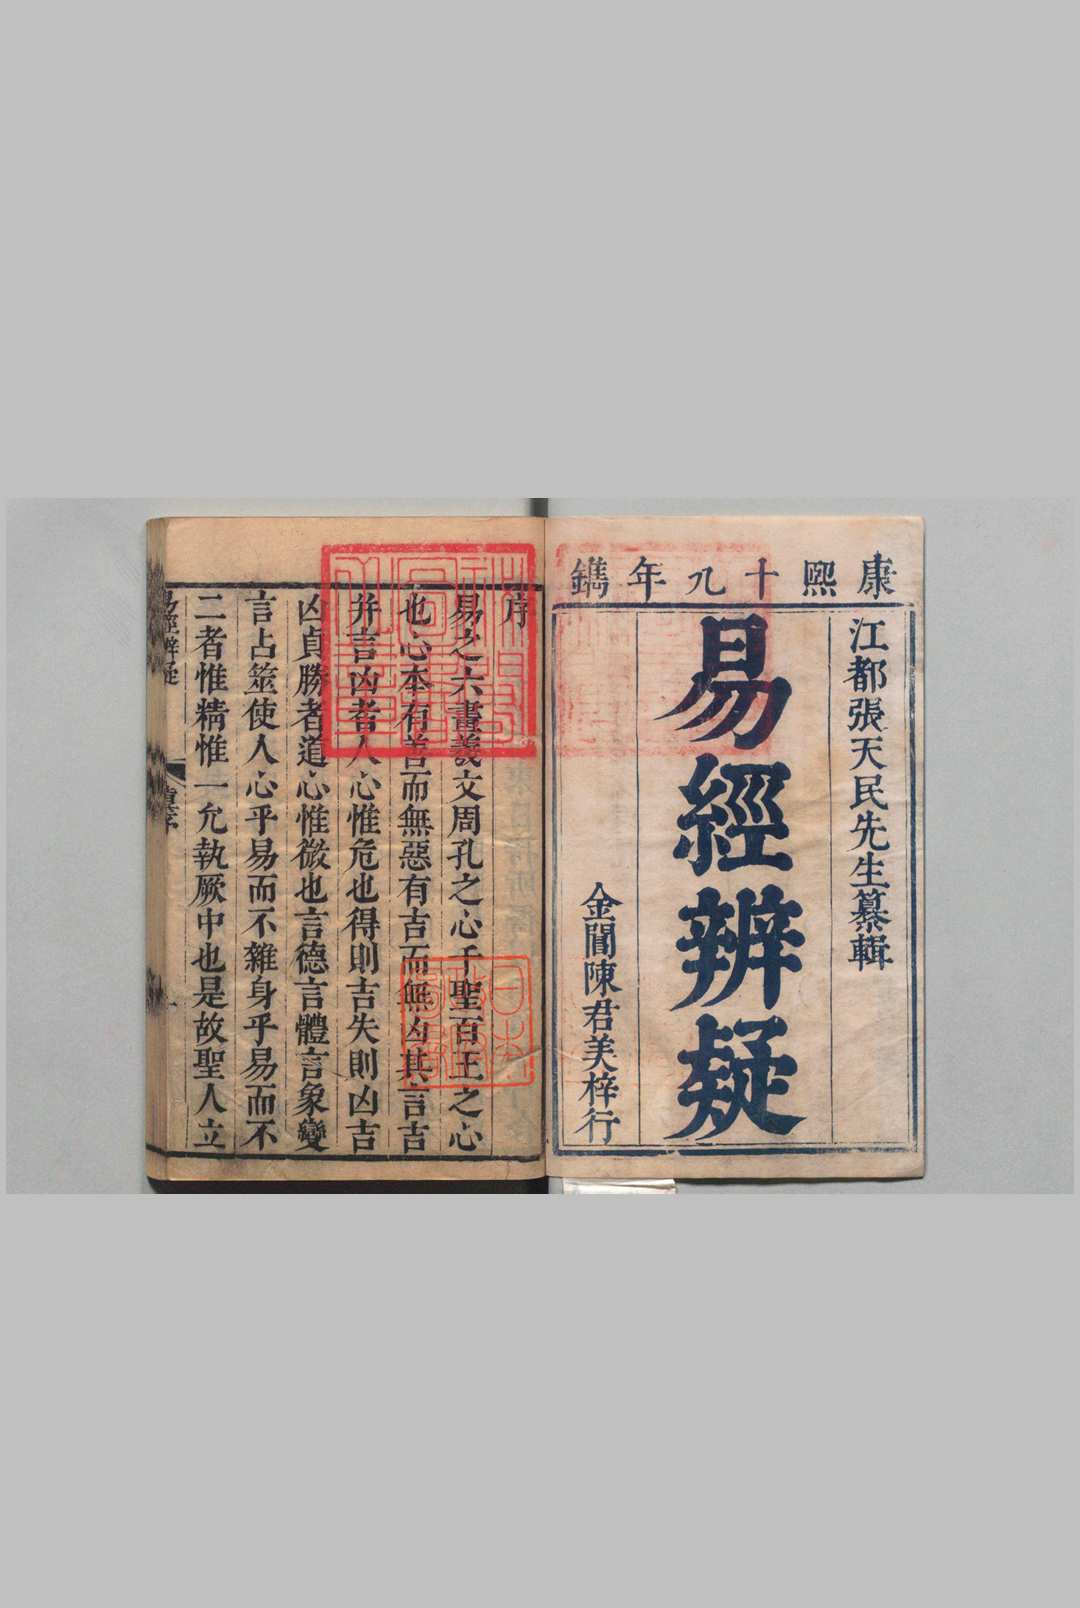 康熙十九年鐫
江都張天民先生纂輯
易經辨疑
金閶陳君美梓行
序
易之六畫羲文周孔之心千聖百王之心
也心本有善而無惡有吉而無凶其言吉
并言凶者人心惟危也得則吉失則凶吉
凶貞勝者道心惟微也言德言體言象變
言占筮使人心乎易而不雜身乎易而不
二者惟精惟一允執厥中也是故聖人立
易經辨疑